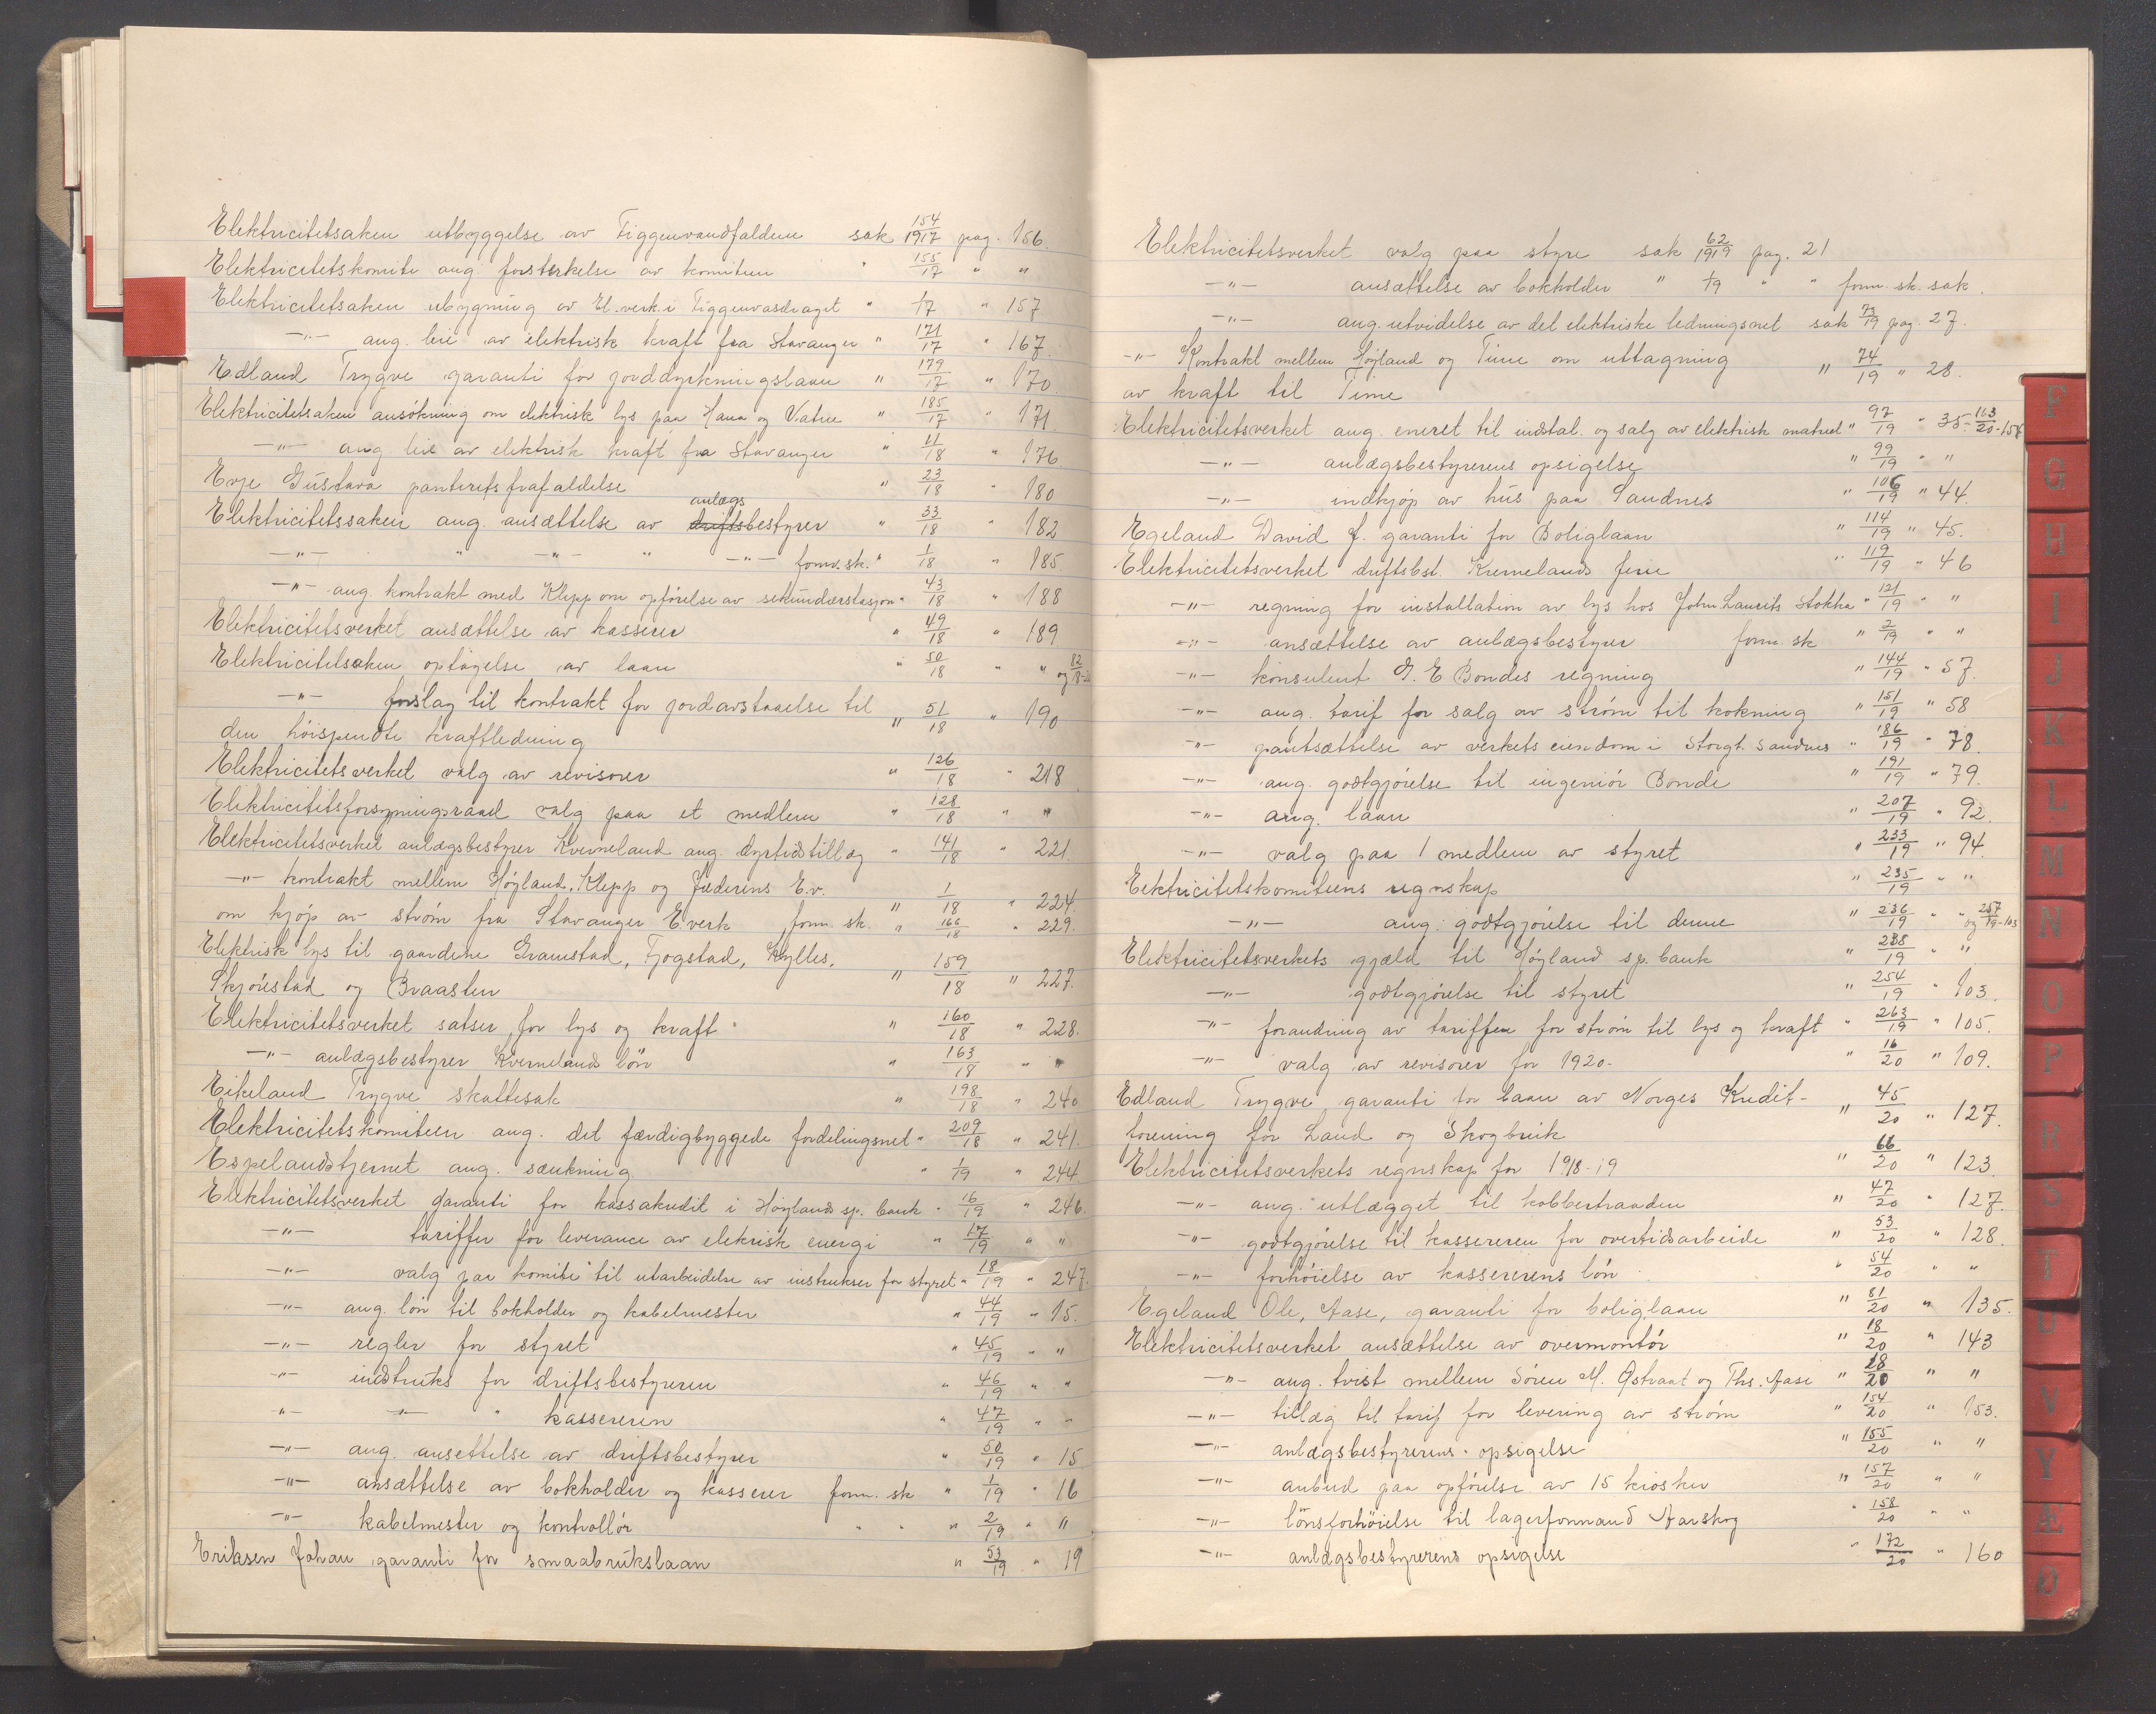 Elektricitetsaken utbyggelse av Figgenvandfaldene sak 154/1917 pag. 156.
Elektricitetskomite ang. forsterkelse av komiteen " 155/17 " "
Elektricitetsaken ubygning av El.verk. i Figgenvasdraget " 1/17 " 157
-"- ang. leie av elektrisk kraft fra Stavanger " 171/17 " 167
Edland Trygve garanti for jorddyrkningslaan " 179/17 " 170
Elektricitetsaken ansökning om elektrisk lys paa Hana og Vatne " 185/17 " 171
-"- ang leie av elektrisk kraft fra Stavanger " 11/18 " 176
Evje Gustava panterets frafaldelse " 23/18 " 180
anlægs
Elektricitetssaken ang. ansættelse av driftsbestyrer " 33/18 " 182
-"- " -"- " -"- formsk. " 1/18 " 185
-"- ang. kontrakt med Klepp om opförelse av sekundærstasjon " 43/18 " 188
Elektricitetsverket ansættelse av kasserer " 49/18 " 189
Elektricitetsaken optagelse av laan " 50/18 " " og 82/18
-"- forslag til kontrakt for jordavstaaelse til " 51/18 " 190
den höispendte kraftledning
Elektricitetsverket valg av revisorer " 126/18 " 218
Elektricitetsforsyningsraad valg paa et medlem " 128/18 " "
Elektricitetsverket anlægsbestyrer Kverneland ang. dyrtidstillæg " 141/18 " 221.
-"- kontrakt mellem Höyland, Klepp og Jæderens E.v. " 1/18 " 224.
om kjöp av ström fra Stavanger E.verk form. sk. " 166/18 " 229.
Elektrisk lys til gaardene Gramstad, Fjogstad, Kylles,
Skjörestad og Braasten " 159/18 " 227.
Elektricitetsverket satser for lys og kraft " 160/18 " 228.
-"- anlægsbestyrer Kvernelands lön " 163/18 " "
Eikeland Trygve skattesak " 198/18 " 240
Elektricitetskomiteen ang. det færdigbyggede fordelingsnet " 209/18 " 241.
Espelandstjernet ang. sænkning " 1/19 " 244.
Elektricitetsverket garanti for kassakredit i Höylands sp. bank " 16/19 " 246
-"- tariffer for leverance av elekrisk energi " 17/19 " "
-"- valg paa komite til utarbeidelse av instrukser for styret " 18/19 " 247.
-"- ang. lön til bokholder og kabelmester " 44/19 " 15.
-"- regler for styret " 45/19 " "
-"- indstruks for driftsbestyreren " 46/19 " "
"- -"- " kassereren " 47/19 " "
-"- ang. ansettelse av driftsbestyrer " 50/19 " 15
-"- ansættelse av bokholder og kasserer form. sk " 1/19 " 16
-"- kabelmester og kontrollör " " " 2/19 " "
Eriksen Johan garanti for smaabrukslaan " 53/19 " 19
Elektricitetsverket valg paa styre sak 62/1919 pag. 21
-"- ansættelse av bokholder " 1/19 " " form. sk. sak.
-"- ang. utvidelse av det elektriske ledningsnet sak 73/19 pag. 27.
-"- Kontrakt mellem Höyland og Time om uttagning " 74/19 " 28.
av kraft til Time
Elektricitetsverket ang. eneret til indstal. og salg av elektrisk matriel " 97/19 " 35- 163/20-158
-"- anlægsbestyrerens opsigelse " 99/19 " "
-"- indkjöp av hus paa Sandnes " 106/19 " 44.
Egeland David J. garanti for Boliglaan " 114/19 " 45.
Elektricitetsverket driftsbst. Kvernelands ferie " 119/19 " 46
-"- regning for installation av lys hos John Laurits Stokka " 121/19 " "
-"- ansættelse av anlægsbestyrer form. sk " 2/19 " "
-"- konsulent G. E Bondes regning " 144/19 " 57.
-"- ang. tarif for salg av ström til kokning " 151/19 " 58
-"- pantsættelse av verkets eiendom i Storgt. Sandnes " 186/19 " 78.
-"- ang. godtgjörelse til ingeniör Bonde " 191/19 " 79.
-"- ang. laan " 207/19 " 92.
-"- valg paa 1 medlem av styret " 233/19 " 94.
Eektricitetskomiteens regnskap " 235/19 " "
-"- ang. godtgjörelse til denne " 236/19 " " og 257/19-103
Elektricitetsverkets gjæld til Höyland sp. bank " 238/19 " "
-"- godtgjörelse til styret " 254/19 " 103.
-"- forandring av tariffen for ström til lys og kraft " 263/19 " 105.
-"- valg av revisorer for 1920. " 16/20 " 109.
Edland Trygve, garanti for laan av Norges Kredit- " 45/20 " 127.
forening for Land og Skogbruk
Elektricitetsverkets regnskap for 1918-19 " 66/20 " 123
-"- ang. utlægget til kobbertraaden " 47/20 " 127.
-"- godtgjörelse til kassereren for overtidsarbeide " 53/20 " 128.
-"- forhöielse av kassererens lön " 54/20 " "
Egeland Ole, Aase, garanti for boliglaan " 81/20 " 135.
Elektricitetsverket ansættelse av overmontör " 18/20 " 143
-"- ang. tvist mellem Sören M. Östraat og Ths. Aase " 28/20 " "
-"- tillæg til tarif for levering av ström " 154/20 " 153.
-"- anlægsbestyrerens opsigelse " 155/20 " "
-"- anbud paa opförelse av 15 kiosker " 157/20 " "
-"- lönsforhöielse til lagerformand Aarskog " 158/20 " "
-"- anlægsbestyrerens opsigelse " 172/20 " 160
F
G
H
I
J
K
L
M
N
O
P
R
S
T
U
V
Y
Æ
Ø